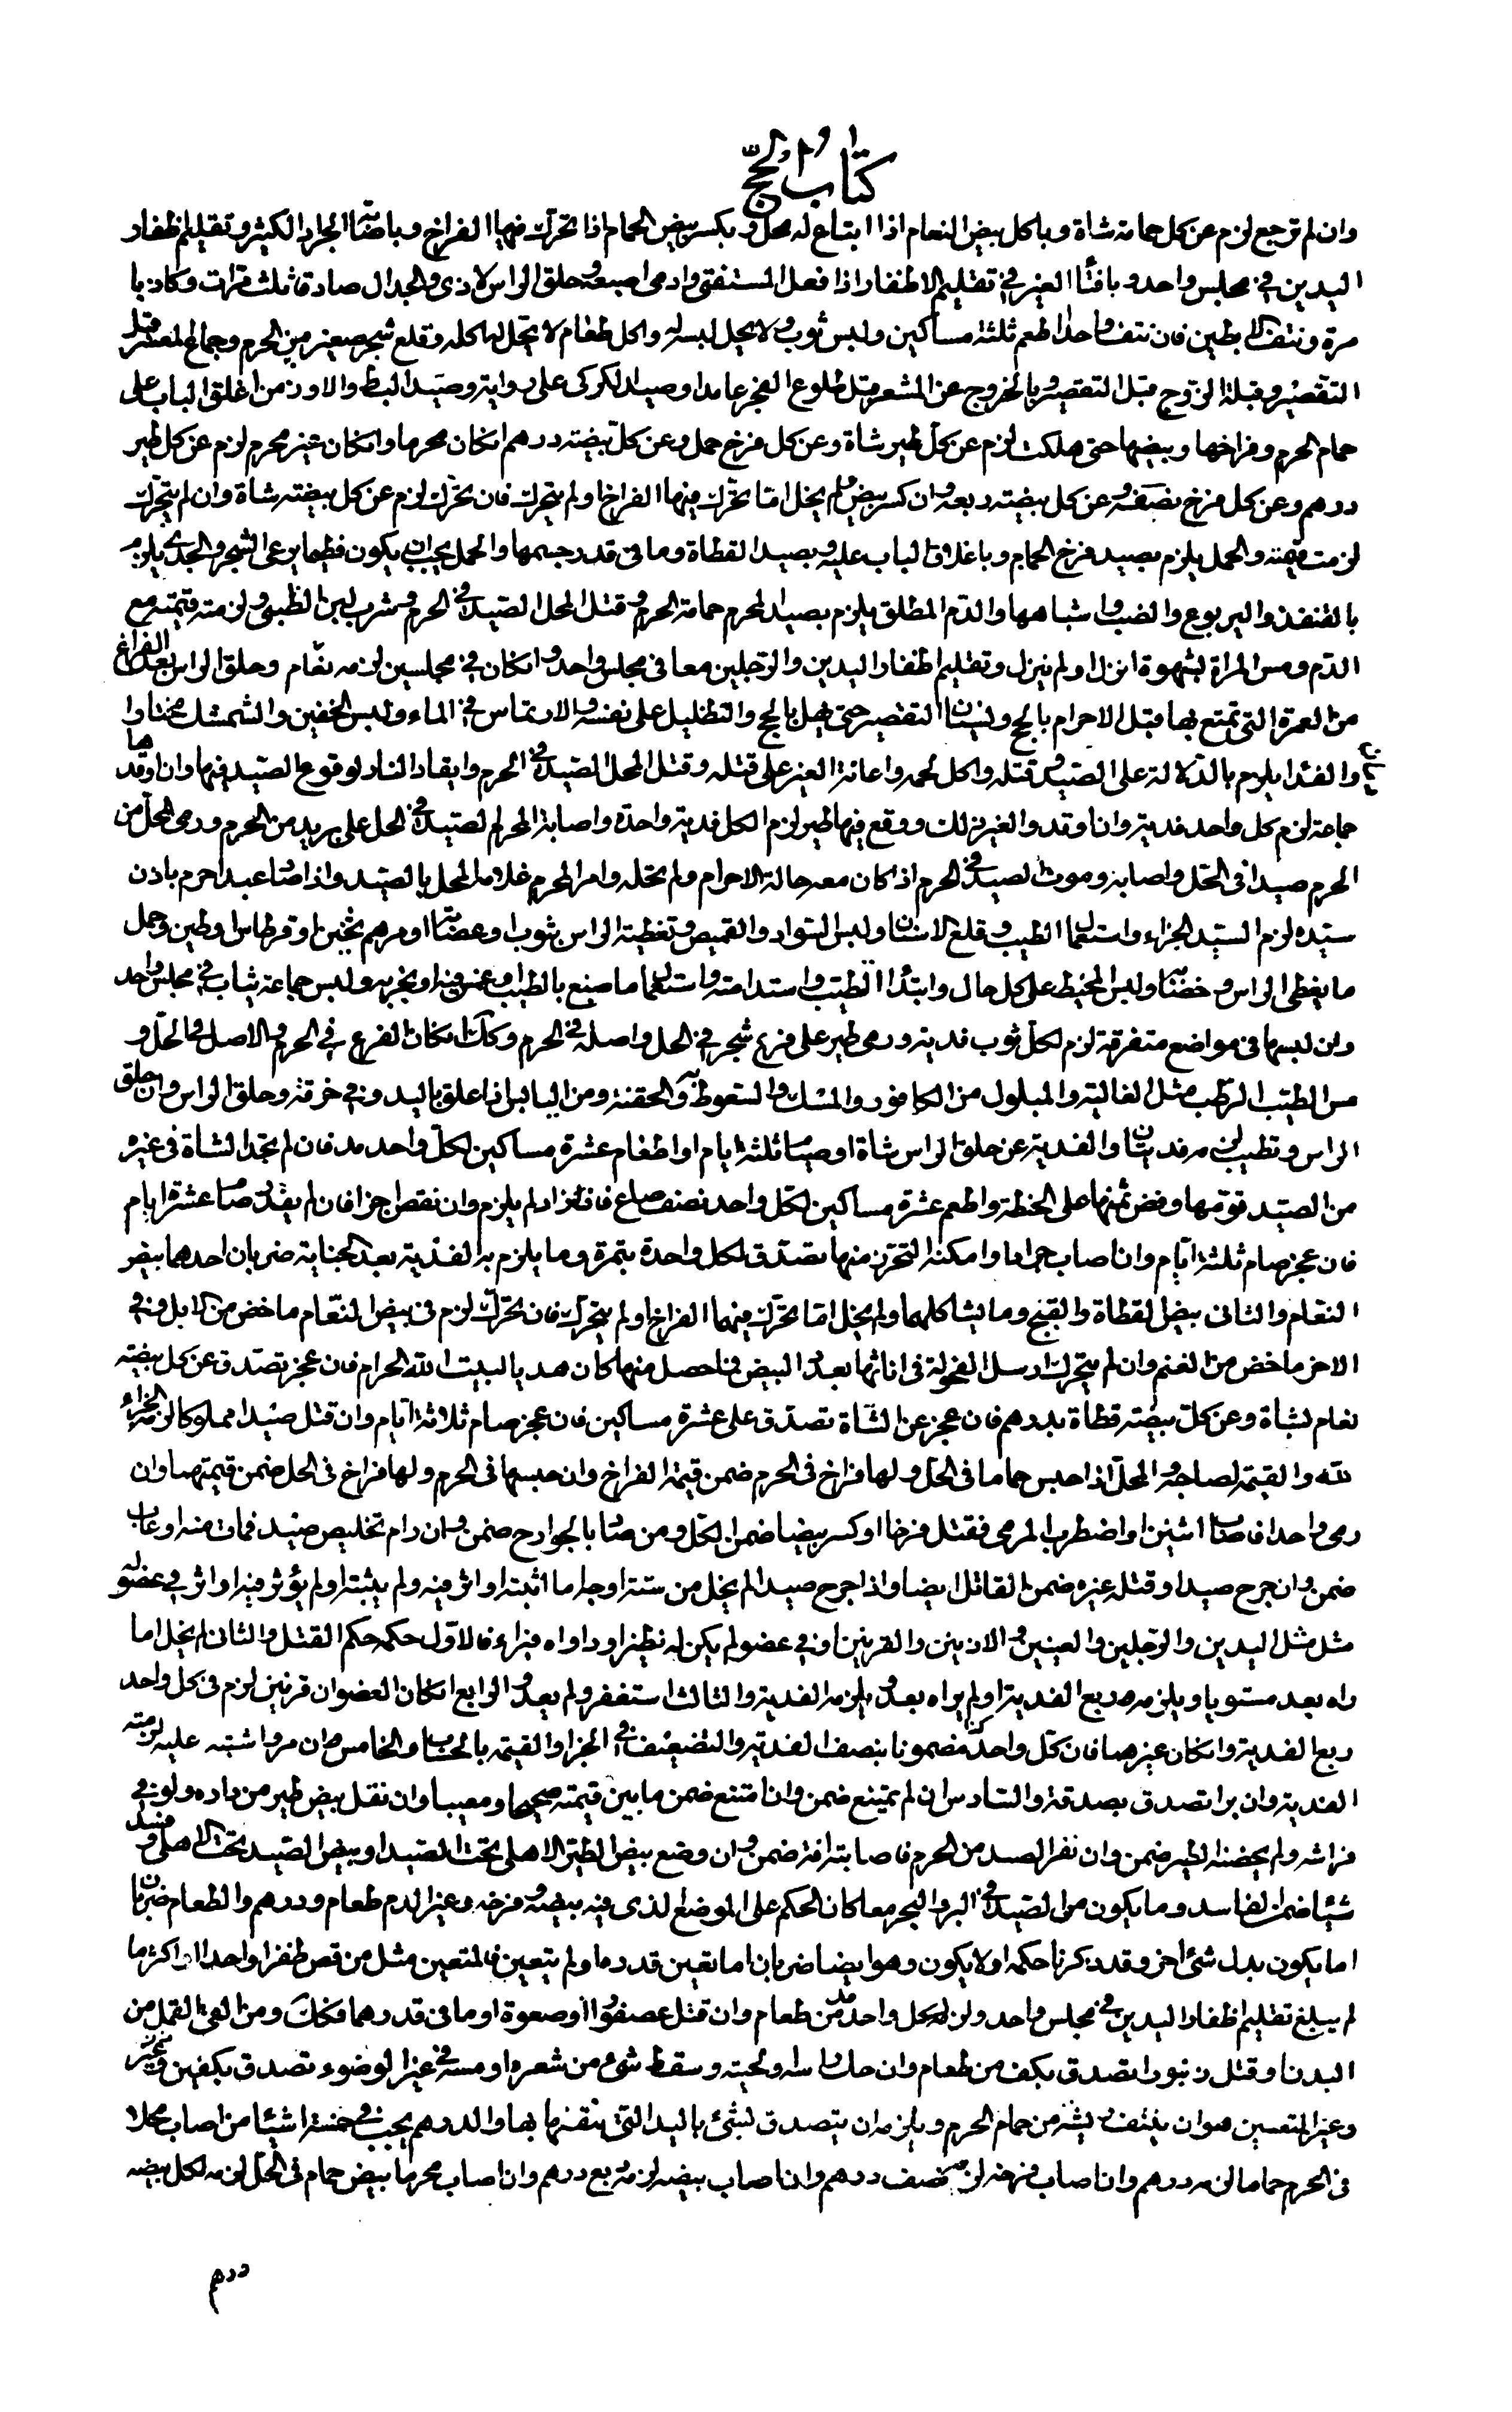 كتاب الحج
وان لم ترجع لزم عن كل حمامة شاة وباكل بيض النعام اذا ابتاع له محل وبكسر بيض الحمام اذا تحرك فيها الفراخ وباصابة الجراد الكثير وتقليم اظفار
اليدين في مجلس واحد وبافتاء الغير في تقليم الاظفار اذا فعل المستفتى وادمى اصبعه وحلق الراس لاذى والجدال صادقا ثلث مرات وكاذبا
مرة ونتف الابطين فان نتف واحدا اطعم ثلثة مساكين ولبس ثوب ولا يحل لبسه واكل طعام لا يحل له اكله وقلع شجر صغير من الحرم وجماع المعتمر قبل
التقصير وقبلة الزوج قبل التقصير وبالخروج عن المشعر قبل طلوع الفجر عامدا وصيد الكركى على رواية وصيد البط والاوز ومن اغلق الباب على
حمام الحرم وفراخها وبيضها حتى هلكت لزم عن كل طير شاة وعن كل فرخ حمل وعن كل بيضة درهم انكان محرما وانكان غير محرم لزم عن كل طير
درهم وعن كل فرخ نصفه وعن كل بيضة ربعه وان كسر بيض لم يخل اما تحرك فيها الفراخ او لم يتحرك فان تحرك لزم عن كل بيضة شاة وان لم يتحرك
لزمت قيمته والحمل يلزم بصيد فرخ الحمام وباغلاق الباب عليه وبصيد القطاة وما في قدر جسمها والحمل يجب ان يكون فطيما يرعى الشجر والجدي يلزم
بالقنفذ واليربوع والضب واشباهها والدم المطلق يلزم بصيد المحرم حمامة الحرم وقتل المحل الصيد في الحرم وشرب لبن الظبي ولزمته قيمته مع
الدم ومس المراة بشهوة انزل او لم ينزل وتقليم اظفار اليدين والرجلين معا في مجلس واحد وانكان في مجلسين لزمه دمان وحلق الراس بعد الفراغ
من العمرة التي تمتع بها قبل الاحرام بالحج ونسيان التقصير حتى يهل بالحج والتظليل على نفسه والارتماس في الماء ولبس الخفين والشمشك مختارا
والفداء يلزم بالدلالة على الصيد وقتله واكل لحمه واعانة الغير على قتله وقتل المحل الصيد في الحرم وايقاد النار لوقوع الصيد فيها وان اوقدها
جماعة لزم كل واحد فدية وان اوقدوا لغير ذلك ووقع فيها طير لزم الكل فدية واحدة واصابة المحرم لصيد في الحل على بريد من الحرم ورمى المحل من
الحرم صيدا في الحل واصابه وموت الصيد في الحرم اذا كان معه حالة الاحرام ولم يخله وامر المحرم غلامه المحل بالصيد واذا صاد عبد احرم باذن
سيده لزم السيد الجزاء واستعمال الطيب وقلع الاسنان ولبس السواد والقميص وتغطية الراس بثوب او عصابة او مرهم ثخين او قرطاس او طين وحمل
ما يغطى الراس وخضابه ولبس المخيط على كل حال وابتداء الطيب واستدامته واستعمال ما صنع بالطيب او غمس فيه او بخر به ولبس جماعة ثياب في مجلس واحد
وان لبسها في مواضع متفرقة لزم لكل ثوب فدية ورمى طير على فرع شجر في الحل واصله في الحرم وكذا ان كان الفرع في الحرم والاصل في الحل و
مس الطيب الرطب مثل الغالية والمبلول من الكافور والمسك والسعوط به والحقنة ومن اليابس اذا علق باليد وفي خرقة وحلق الراس وان حلق
الراس وتطيب لزمه فديتان والفدية عن حلق الراس شاة او صيام ثلثة ايام او اطعام عشرة مساكين لكل واحد مد فان لم يجد الشاة في غيره
من الصيد قومها وفض ثمنها على الحنطة واطعم عشرة مساكين لكل واحد نصف صاع فان زاد لم يلزم وان نقص اجزا فان لم يقدر صام عشرة ايام
فان عجز صام ثلثة ايام وان اصاب جرادا وامكنه التحرز منها تصدق لكل واحدة بتمرة وما يلزم به الفدية بعد الجناية ضربان احدهما بيض
النعام والثانى بيض القطاة والقبج وما يشاكلهما ولم يخل اما تحرك فيها الفراخ او لم يتحرك فان تحرك لزم في بيض النعام ماخض من الابل وفي
الاخر ماخض من الغنم وان لم يتحرك ارسل الفحولة في اناثها بعدد البيض فما حصل منها كان هديا لبيت الله الحرام فان عجز تصدق عن كل بيضة
نعام بشاة وعن كل بيضة قطاة بدرهم فان عجز عن الشاة تصدق على عشرة مساكين فان عجز صام ثلاثة ايام وان قتل صيدا مملوكا لزمه الجزاء
لله والقيمة لصاحبه والمحل اذا حبس حماما في الحل ولها فراخ في الحرم ضمن قيمة الفراخ وان حبسها في الحرم ولها فراخ في الحل ضمن قيمتهما وان
رمى واحدا فاصاب اثنين او اضطرب المرمى فقتل فرخا او كسر بيضا ضمن الكل ومن صاد بالجوارح ضمن وان رام تخليص صيد فمات منه او عاب
ضمن وان جرح صيدا وقتله غيره ضمن القاتل ايضا واذا جرح صيدا لم يخل من ستة اوجه اما اثبته او اثر فيه ولم يثبته او لم يؤثر فيه او اثر في عضو له
مثل مثل اليدين والرجلين والعينين والاذنين والقرنين او في عضو لم يكن له نظير او داواه فبراء فالاول حكمه حكم القتل والثانى لم يخل اما
راه بعد مستويا ويلزمه ربع الفدية او لم يراه بعد ويلزمه الفدية والثالث استغفر ولم يعد والرابع انكان العضوان قرنين لزم في كل واحد
ربع الفدية وانكان غيرهما فان كل واحد كان مضمونا بنصف الفدية والتضعيف في الجزاء والقيمة بالحساب والخامس وان مر واشتبه عليه لزمته
الفدية وان برا تصدق بصدقة والسادس ان لم يمتنع ضمن وان امتنع ضمن ما بين قيمته صحيحا ومعيبا وان نقل بيض طير من داره ولو في
فراشه ولم يحضنه الطير ضمن وان نفر الصيد من الحرم فاصابته افة ضمن وان وضع بيض الطير الاهلى تحت الصيد او بيض الصيد تحت الاهلى وفسد
شيئا ضمن الفاسد وما يكون من الصيد في البر والبحر معا كان الحكم على الموضع الذى فيه بيضه وفرخه وغير الدم طعام ودرهم والطعام ضربان
اما يكون بدل شئ اخر وقد ذكرنا حكمه او لا يكون وهو ايضا ضربان اما تعين قدره او لم يتعين فالمتعين مثل من قص ظفرا واحدا او اكثر ما
لم يبلغ تقليم اظفار اليدين في مجلس واحد ولزمه لكل واحد مد من طعام وان قتل عصفورا او صعوة او ما في قدرهما فكذلك ومن القى القمل من
البدن او قتل زنبورا تصدق بكف من طعام وان حك راسه ولحيته وسقط شئ من شعره او مسه في غير الوضوء تصدق بكفين
وغير المتعين هو ان ينتف ريشة من حمام الحرم ويلزمه ان يتصدق بشئ باليد التى ينتفها بها والدرهم يجب في خمسة اشياء من اصاب محلا
في الحرم حماما لزمه درهم وان اصاب فرخه لزمه نصف درهم وان اصاب بيضه لزمه ربع درهم وان اصاب محرما بيض حمام في الحل لزمه لكل بيضه
درهم